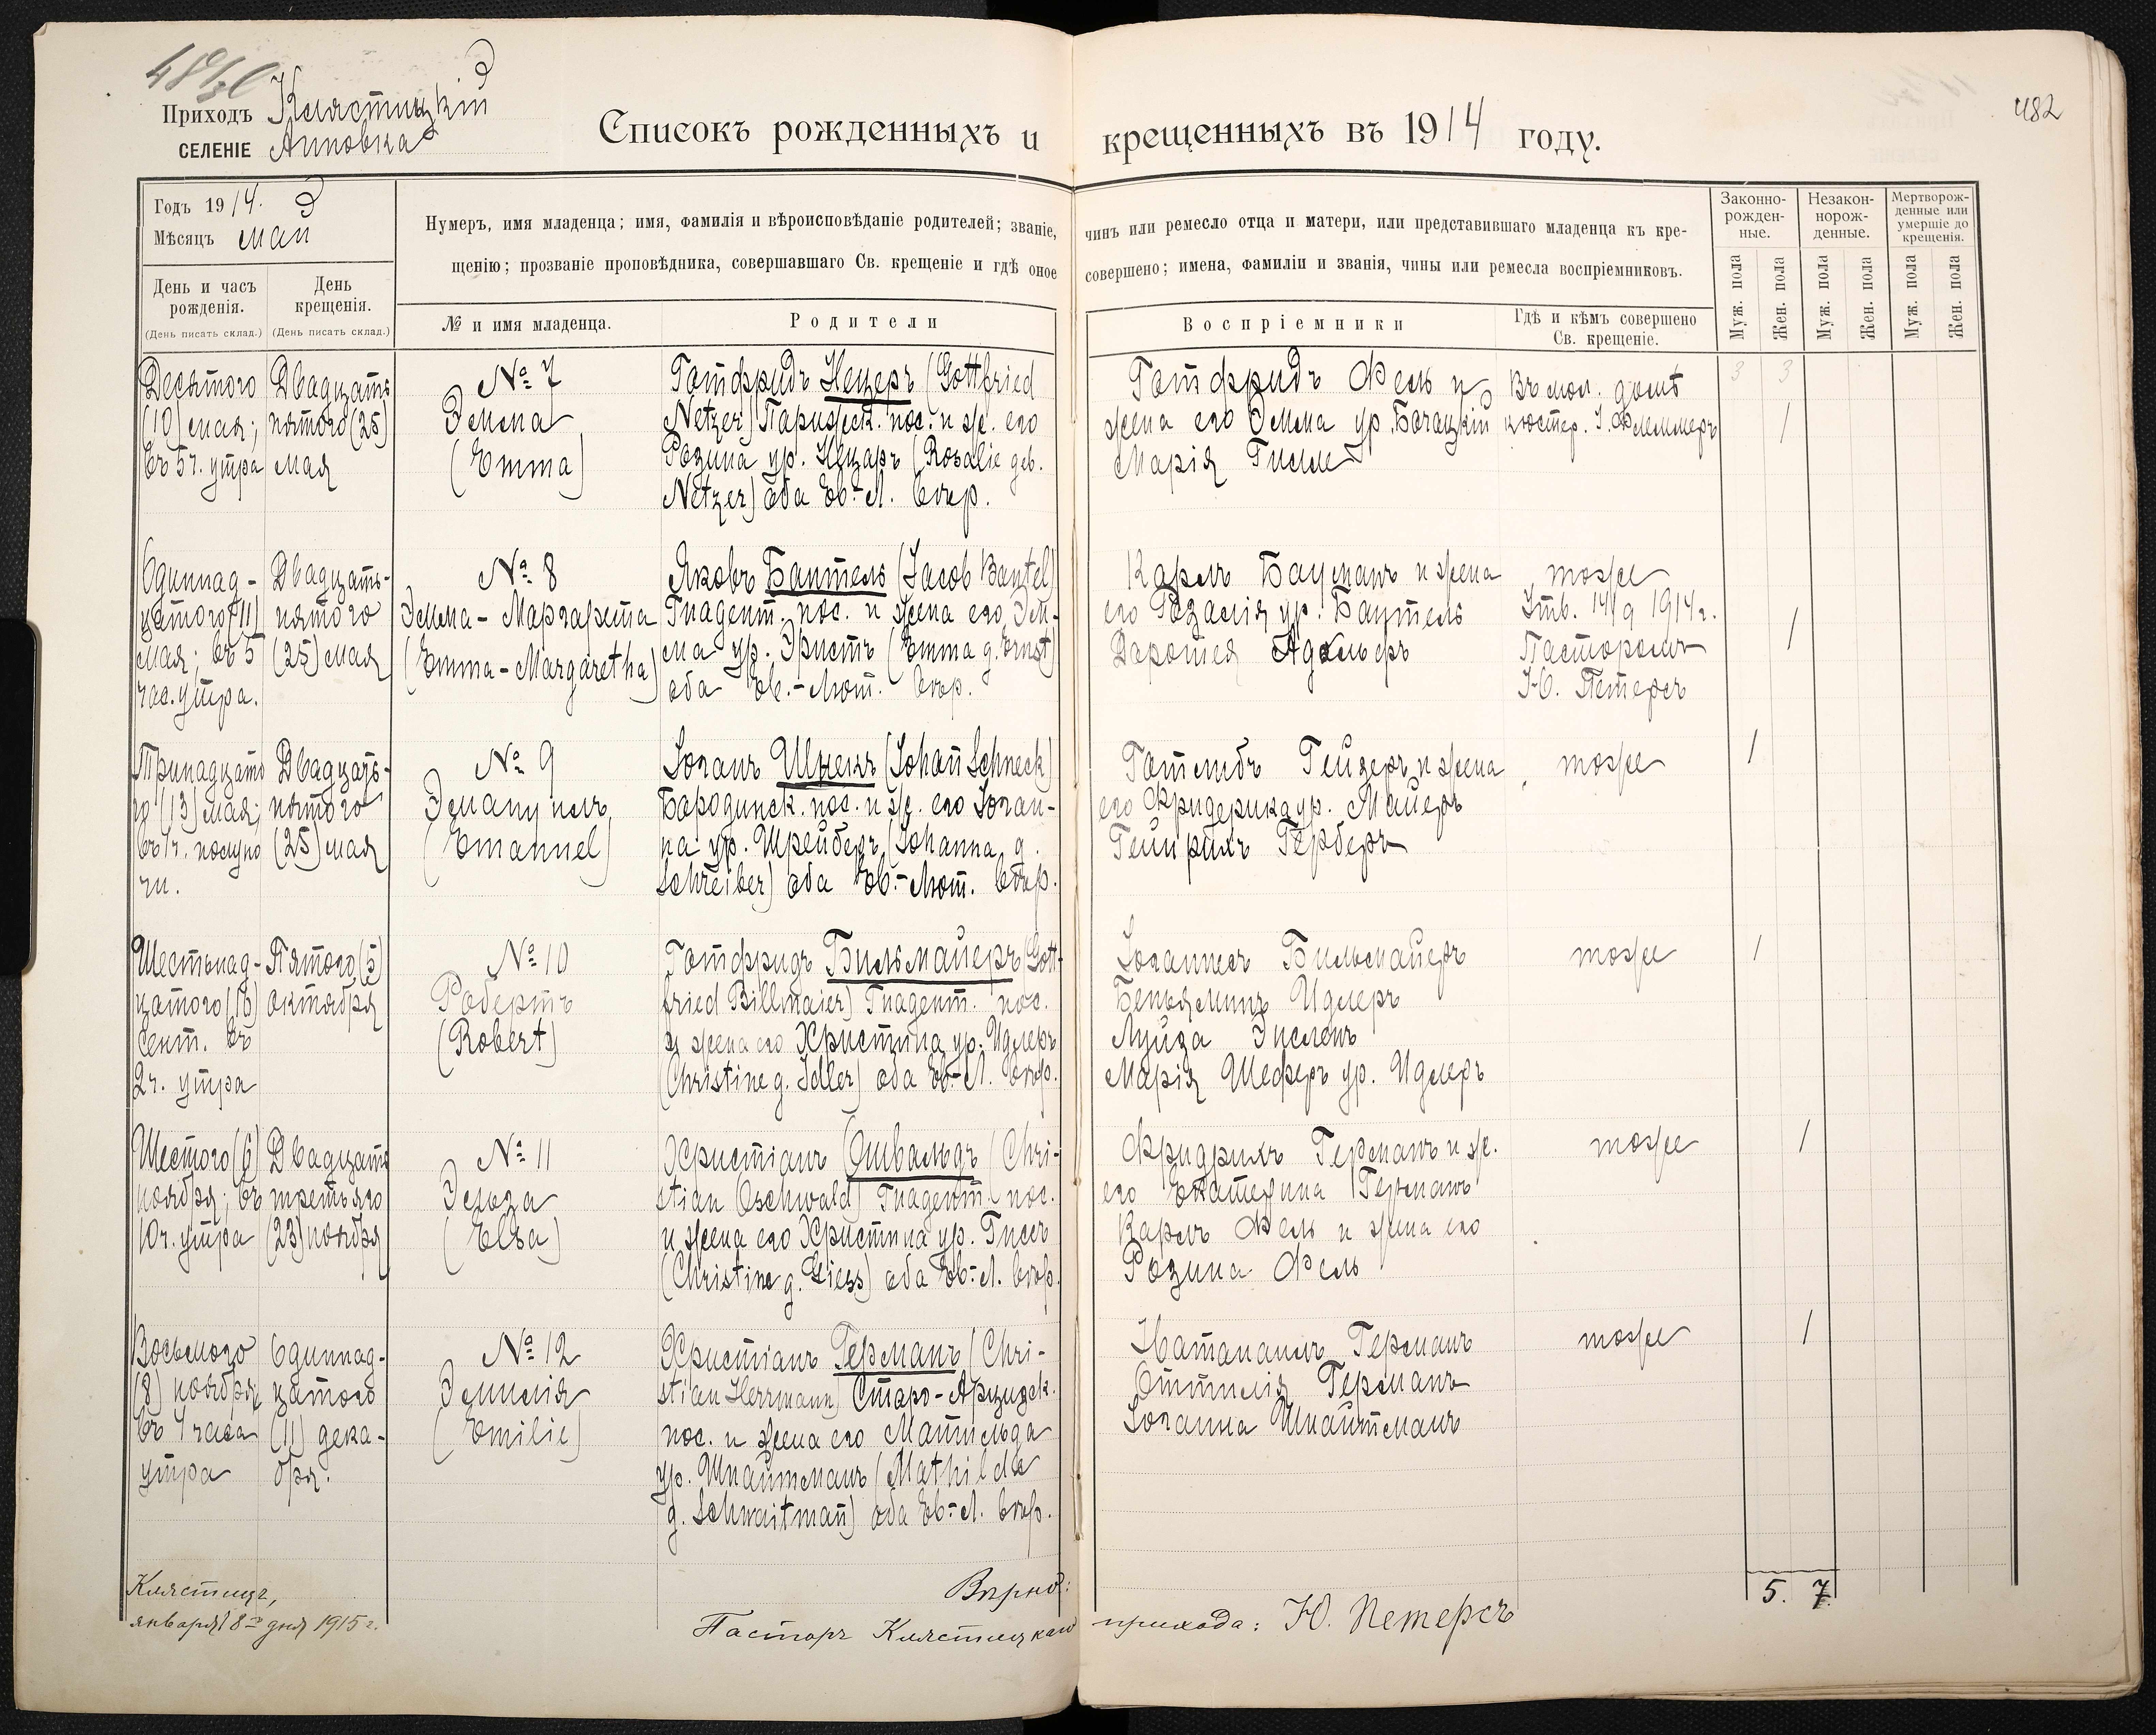 482
Приходъ Клястицкій
СЕЛЕНІЕ Анновка
Списокъ рожденныхъ и крещенныхъ въ 1914 году.
Годъ 1914.
Мѣсяцъ май
Нумеръ, имя младенца; имя, фамилія и вѣроисповѣданіе родителей; званіе, чинъ или ремесло отца и матери, или представившаго младенца къ кре-
щенію; прозваніе проповѣдника, совершавшаго Св. крещеніе и гдѣ оное совершено; имена, фамиліи и званія, чины или ремесла воспріемниковъ.
Законно-
рожден-
ные.
Незакон-
норож-
денные.
Мертворож-
денные или
умершіе до
крещенія.
День и часъ
рожденія.
(День писать склад.)
День
крещенія.
(День писать склад.)
№ и имя младенца.
Родители
Воспріемники
Гдѣ и кѣмъ совершено
Св. крещеніе.
Муж. пола
Жен. пола
Муж. пола
Жен. пола
Муж. пола
Жен. пола
Десятого
(10) мая;
въ 5 ч. утра
Двадцать
пятого (25)
мая
№ 7
Эмма
(Emma)
Готфридъ Нецеръ (Gottfried
Netzer) Парижск. пос. и ж. его
Розина ур. Нецаръ (Rosalie geb.
Netzer) оба Ев.-Л. вѣр.
Готфридъ Фель и
жена его Эмма ур. Богацкій
Марія Гисъ
Въ мол. домѣ
кюстер. І. Флеммеръ
3 3
1
Одиннад-
цатого (11)
мая; въ 5
час. утра.
Двадцать-
пятого
(25) мая
№ 8
Эмма-Маргарета
(Emma-Margaretha)
Яковъ Бантель (Jacob Bantel)
Гнадент. пос. и жена его Эм-
ма ур. Эрнстъ (Emma g. Ernst)
оба Ев.-Лют. вѣр.
Карлъ Бауманъ и жена
его Розалія ур. Бантель
Даротея
тоже
14/9 1914 г.
Пасторомъ
Ю. Петерсъ
1
Тринадцато
го (13) мая;
въ 1 ч. полуно
чи.
Двадцать-
пятого
(25) мая
№ 9
Эмануилъ
(Emanuel)
Іоганъ Шнекъ (Johan̄ Schneck)
Бородинск. пос. и ж. его Іоган-
на ур. Шрейберъ (Johanna g.
Schreiber) оба Ев.-Лют. вѣр.
Готлибъ Гейзеръ и жена
его Фридерика ур. Майеръ
Гейнрихъ Герберъ
тоже
1
Шестьнад-
цатого (16)
сент. въ
2 ч. утра
Пятого (5)
октября
№ 10
Робертъ
(Robert)
Готфридъ Бильмайеръ (Gott-
fried Billmaier) Гнадент. пос.
и жена его Христина ур. Идлеръ
(Christine g. Idler) оба Ев.-Л. вѣр.
Іоганнесъ Бильмайеръ
Беньяминъ Идлеръ
Луиза Энсленъ
Марія Шеферъ ур. Идлеръ
тоже
1
Шестого (6)
ноября; въ
10 ч. утра
Двадцать
третьяго
(23) ноября
№ 11
Эльза
(Elsa)
Христіанъ Ошвальдъ (Chri-
stian Oschwald) Гнадент. пос.
и жена его Христина ур. Гисъ
(Christine g. Giess) оба Ев.-Л. вѣр.
Фридрихъ Германъ и ж.
его Екатерина Германъ
Карлъ Фель и жена его
Розина Фель
тоже
1
Восьмого
(8) ноября
въ 4 часа
утра
Одиннад-
цатого
(11) дека-
бря.
№ 12
Эмилія
(Emilie)
Христіанъ Германъ (Chri-
stian Herrmann) Старо-Арцизск.
пос. и жена его Матильда
ур. Шнайтманъ (Mathilde
g. Schnaitman̄) оба Ев.-Л. вѣр.
Натанаилъ Германъ
Оттилія Германъ
Іоганна Шнайтманъ
тоже
1
5. 7.
Клястицъ,
января 8го дня 1915 г.
Вѣрно:
Пасторъ Клястицкаго прихода: Ю. Петерсъ